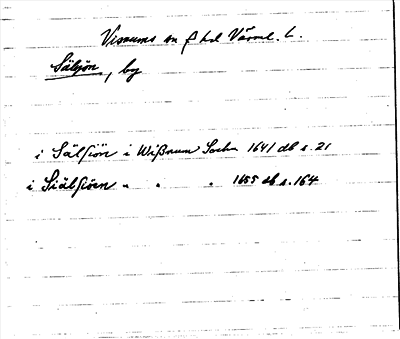 Visnums sn f hd Värml. l.
Säljön, by
i Säl∫iön i Wißnum Sochn 1641 db s. 21
i Siäl∫iöen " " " 1655 db s. 164